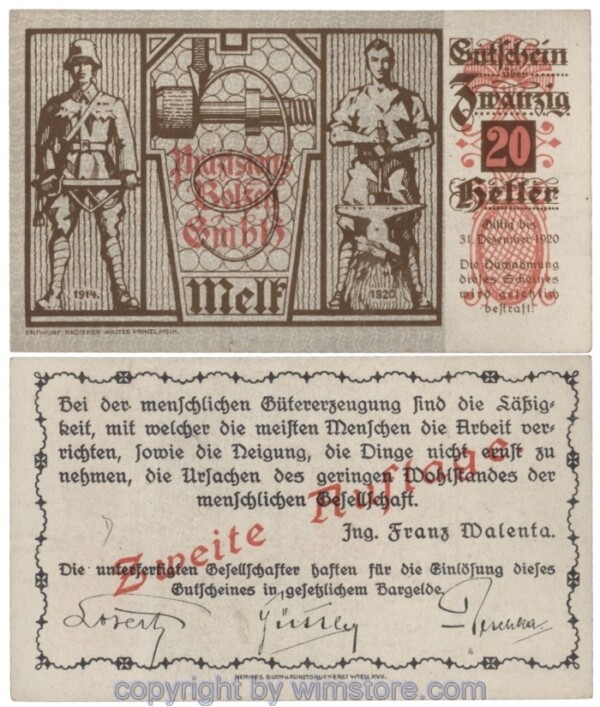 Gutschein
über
Zwanzig
20
Heller
Gültig bis
31. Dezember 1920
Die Nachahmung
dieses Scheines
wird gerichtlich
bestraft!
Präzisions
Bolzen
GmbH
Melk
1914.
1920
ENTWURF: DROSEKER WALTER PRINZL, MELK.
Bei der menschlichen Gütererzeugung sind die Läßig-
keit, mit welcher die meisten Menschen die Arbeit ver-
richten, sowie die Neigung, die Dinge nicht ernst zu
nehmen, die Ursachen des geringen Wohlstandes der
menschlichen Gesellschaft.
Ing. Franz Walenta.
Zweite Auflage.
Die unterfertigten Gesellschafter haften für die Einlösung dieses
Gutscheines in gesetzlichem Bargelde.
HERMES BUCH & KUNSTDRUCKEREI WIEN, XVII.
copyright by wimstore.com